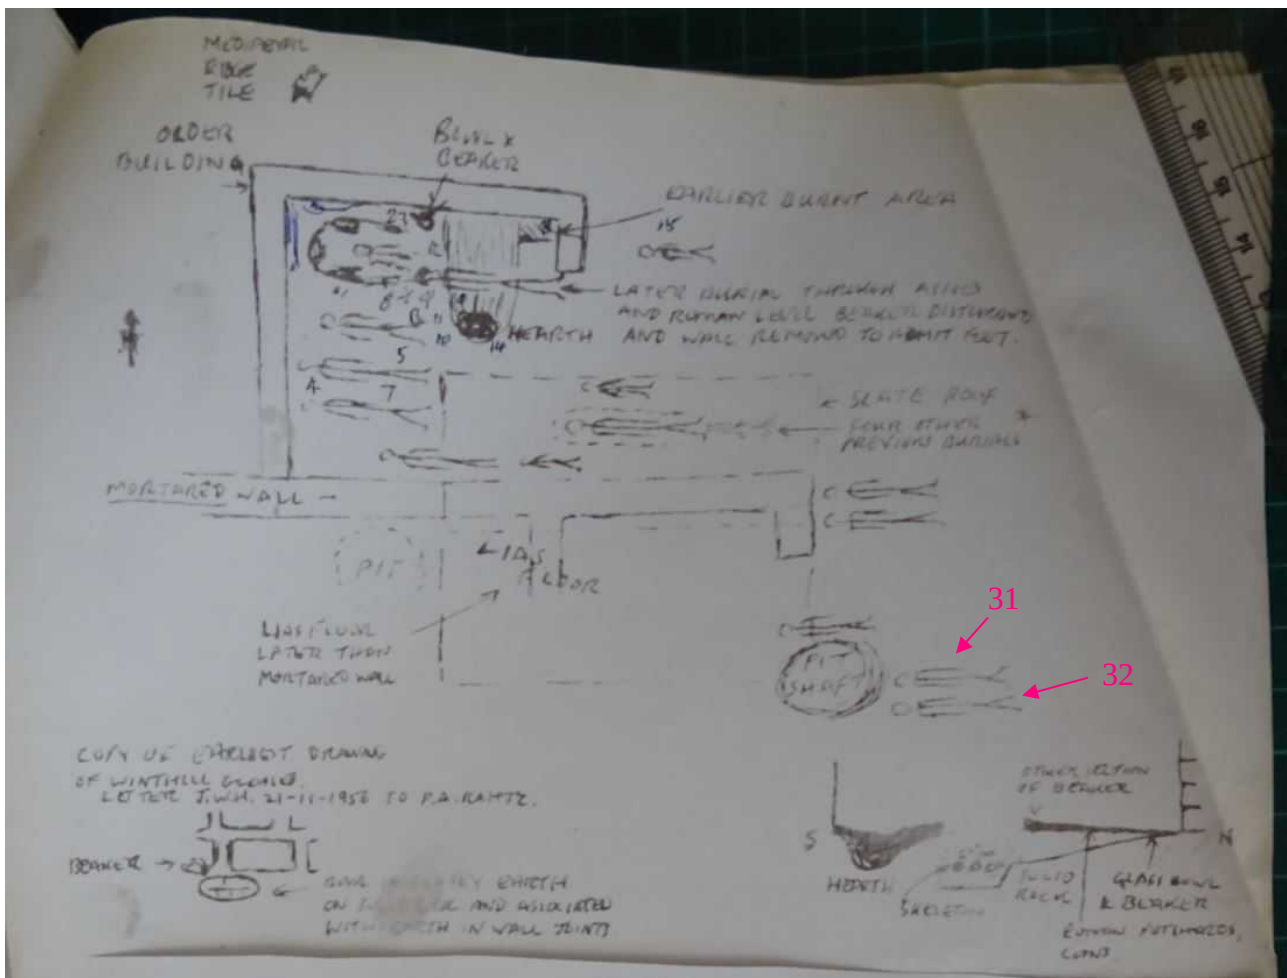 MEDIAEVAL
RIDGE
TILE
ORDER
BUILDING
BOWL &
BEAKER
EARLIER BURNT AREA
23
15
LATER BURIAL THROUGH
AND ROMAN LEVEL BEAKER DISTURBED
AND WALL REMOVED TO ADMIT FEET.
8
9
B
11
10
14
HEARTH
5
4
7
SLATE ROOF
FOUR OTHER
PREVIOUS BURIALS
MORTARED WALL
PIT
LIAS
FLOOR
LIAS FLOOR
LATER THAN
MORTARED WALL
31
PIT
SHAFT
32
COPY OF EARLIEST DRAWING
OF WINTHILL
LETTER J.W.H. 21-11-1956 TO P.A. RAHTZ.
BEAKER
EARTH
ON AND ASSOCIATED
WITH EARTH IN WALL JOINTS
S
HEARTH
SKELETON
SOLID
ROCK
OTHER SECTION
OF BEAKER
N
GLASS BOWL
& BEAKER
ROMAN POTSHERDS,
COINS
16
15
14